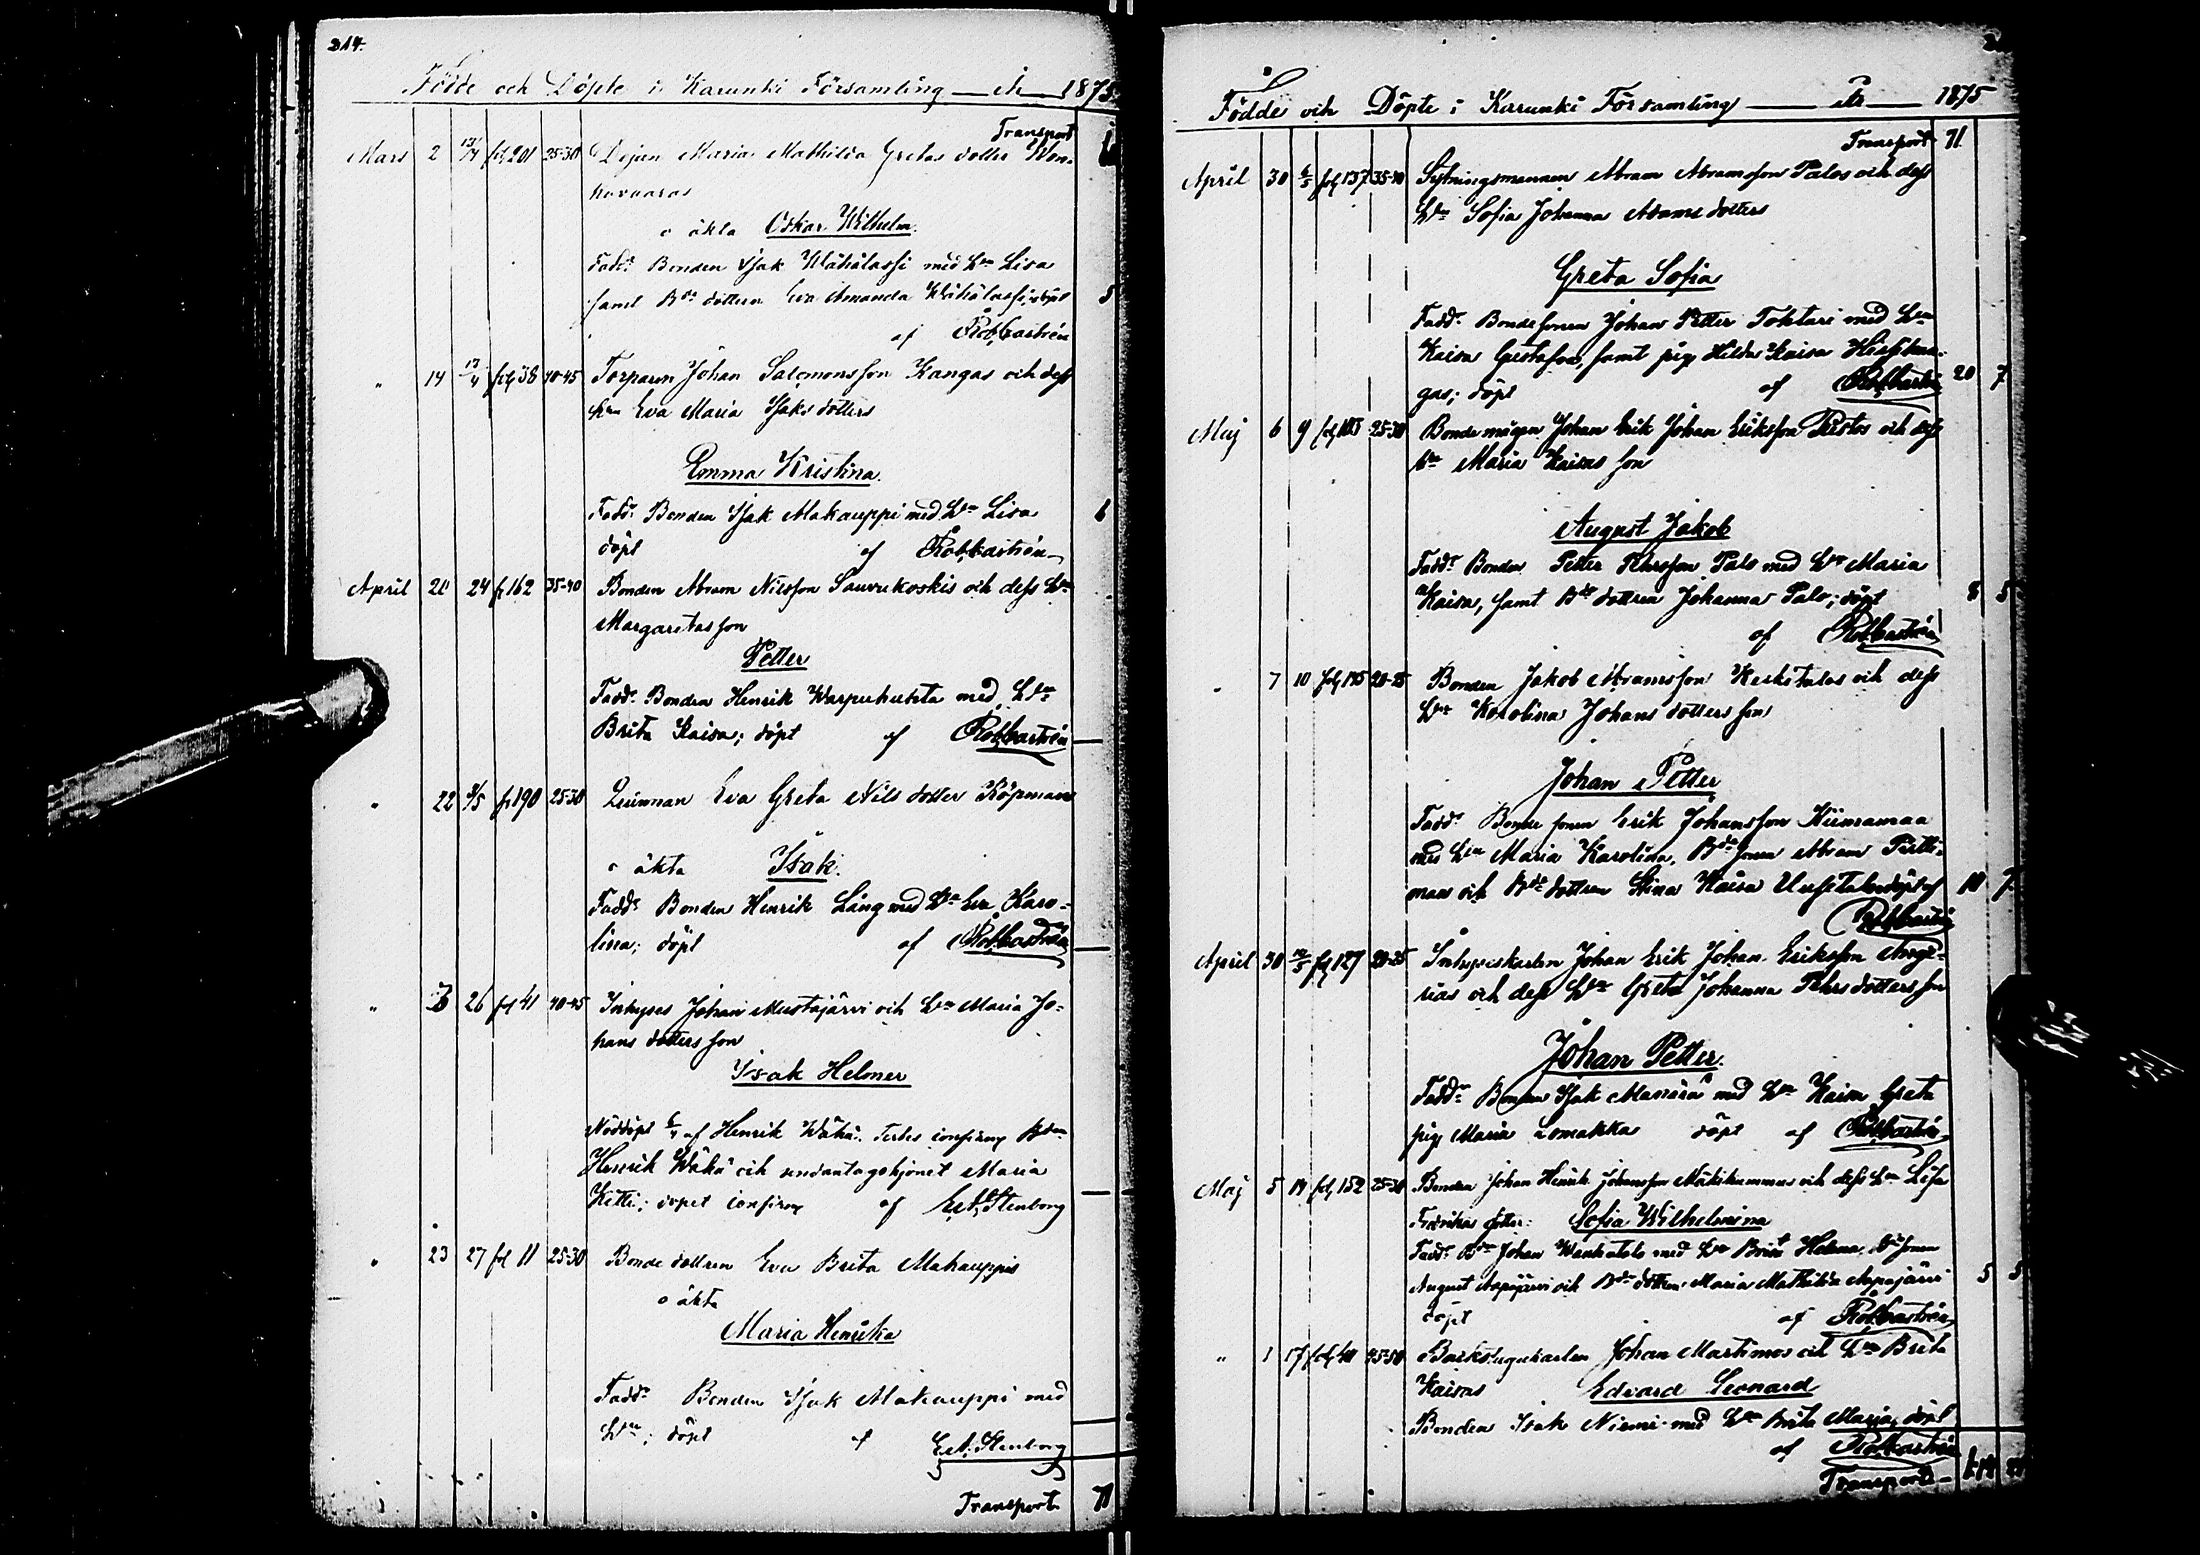 314.
Födde och Döpte i Karunki Församling år 1875.
Transport
Mars 2 fol 201 25-30 Dejan Maria Mathilda Gretas dotter
o äkta Oskar Wilhelm.
Fadd: Bonden Isak Wähälassi med H:u Lisa
samt B:de dottern Eva Amanda Wähälassi; döpt 5
af Rob. Castrén
" 14 13/4 fol 38 40-45 Torparen Johan Salomonsson Kangas och dess
h:u Eva Maria Isaks dotters
Emma Kristina.
Fadd: Bonden Isak Makauppi med H:u Lisa 6
döpt af Rob. Castrén
April 20 24 f 162 35-40 Bonden Abram Nilsson Sauvukoskis och dess H:u
Margaretas son
Petter
Fadd: Bonden Henrik Warpuhuhta med H:u
Brita Kaisa; döpt af Rob. Castrén
" 22 2/5 f 190 25-30 Qvinnan Eva Greta Nils dotter Köpmans
o äkta Isak.
Fadd: Bonden Henrik Lång med H:u Eva Karo-
lina; döpt af Rob. Castrén
" 26 fol 41 40-45 Inhyses Johan Mustajärvi och H:u Maria Jo-
hans dotters son
Isak Helmer
Nöddöpt af Henrik Wähä. Testes confirm B:den
Henrik Wähä och undantagshjonet Maria
Kitti; dopet confirm af E. A. Stenborg
" 23 27 fol 11 25-30 Bonde dottren Eva Brita Makauppis
o äkta
Maria Henrika
Fadd: Bonden Isak Makauppi med
H:u; döpt af E. A. Stenborg
Transport 71
Födde och Döpte i Karunki Församling år 1875
Transport 71
April 30 6/5 fol 137 35-40 Sytningsmannen Abram Abramsson Palos och dess
H:u Sofia Johanna Adams dotters
Greta Sofia
Fadd: Bondesonen Johan Petter Toktari med H:u
Kaisa Gustafva, samt pig Hilda Kaisa Hiestman-
gas; döpt af Rob. Castrén 20 7
Maj 6 9 25-30 Bonde mågen Johan Erik Johan Eriksson Ristos och dess
h:u Maria Kaisas son
August Jakob
Fadd: Bonden Petter Pehrsson Palo med H:u Maria
Kaisa, samt B:de dottren Johanna Palo; döpt 8 5
af Rob. Castrén
" 7 10 20-25 Bonden Jakob Abramsson Keskitalos och dess
H:u Karolina Johans dotters son
Johan Petter
Fadd: Bonde sonen Erik Johansson Kiimamaa
med H:u Maria Karolina, B:de sonen Abram Pertti-
man och B:de dottren Stina Kaisa Uusitalo; döpt af 10 7
Rob. Castrén
April 30 fol 127 20-25 Inhyseskarlen Johan Erik Johan Eriksson
och dess H:u Greta Johanna Pehrs dotters son
Johan Petter.
Fadd: Bonden Isak med H:u Kaisa Greta
pig Maria döpt af Rob. Castrén
Maj 5 14 fol 152 25-30 Bonden Johan Henrik Johansson och dess H:u Lisa
Fredrikas dotter: Sofia Wilhelmina
Fadd: B:den Johan med H:u Brita Helena, B:de sonen
August Aapajärvi och B:de dottren Maria Mathilda Aapajärvi 5 5
döpt af Rob. Castrén
" 1 17 fol 40 45-50 Backstugukarlen Johan Martimos och H:u Brita
Kaisas Edvard Leonard
Bonden Isak Niemi med H:u Brita Maria, döpt
af Rob. Castrén
Transport